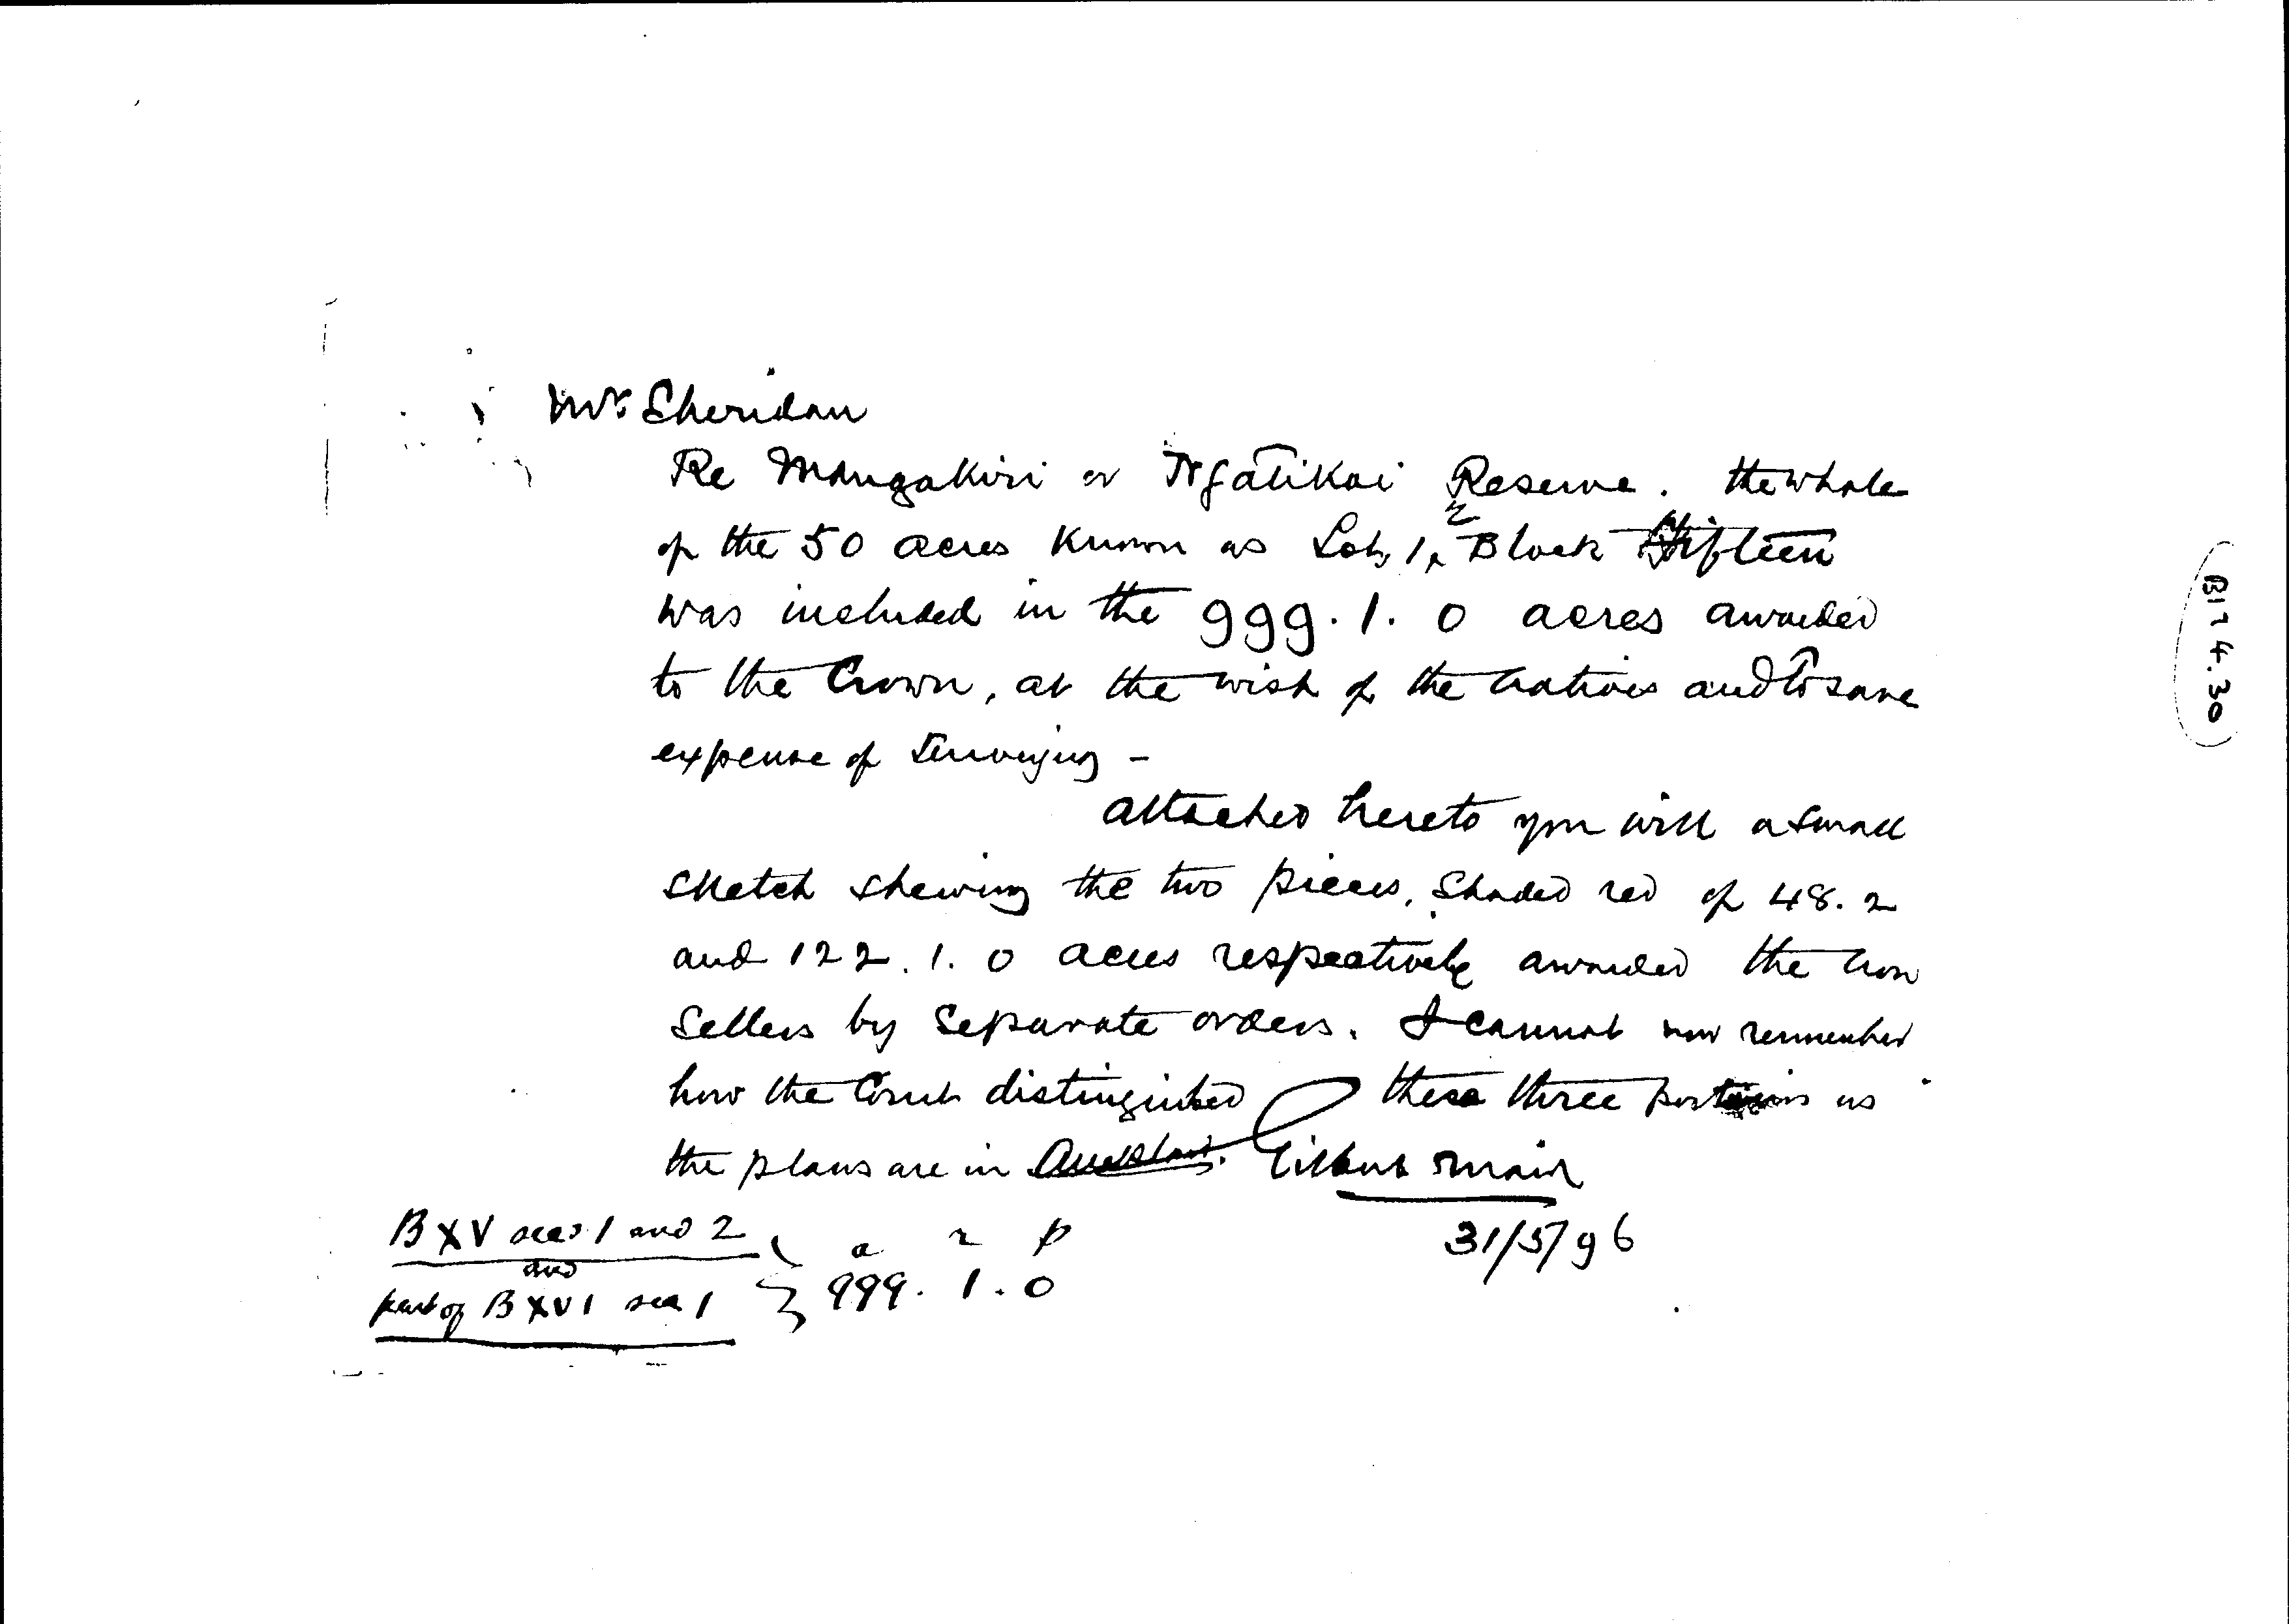 Mr Sheridan
Re Mangakiri or Ngatikai Reserve. the whole
of the 50 acres known as Lot, 1, Block Fifteen
2
was included in the 999. 1. 0 acres awarded
to the Crown, at the wish of the natives and to save
expense of Surveying -
attached hereto you will a small
sketch shewing the two pieces, shaded red of 48. 2
and 122. 1. 0 acres respectively awarded the non
sellers by separate orders. I cannot now remember
how the Court distinguished these three portions as
the plans are in Auckland. Gilbert Mair
31/5/96
B XV secs 1 and 2
and
part of B XVI sec 1
a r p
999. 1. 0
B17 4.30